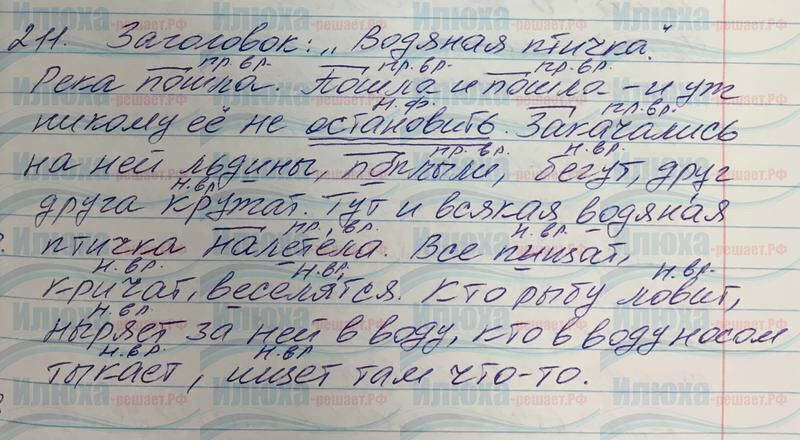 211. Заголовок: „Водяная птичка."
пр. вр. пр. вр. пр. вр.
Река пошла. Пошла и пошла – и уж
н. ф. пр. вр.
никому её не остановить. Закачались
пр. вр. н. вр.
на ней льдины, поплыли, бегут, друг
н. вр
друга кружат. Тут и всякая водяная
пр. вр. н. вр.
птичка налетела. Все пищат,
н. вр. н. вр. н. вр.
кричат, веселятся. Кто рыбу ловит,
н. вр.
ныряет за ней в воду, кто в воду носом
н. вр. н. вр.
тыкает, ищет там что-то.
Илюха-решает.РФ